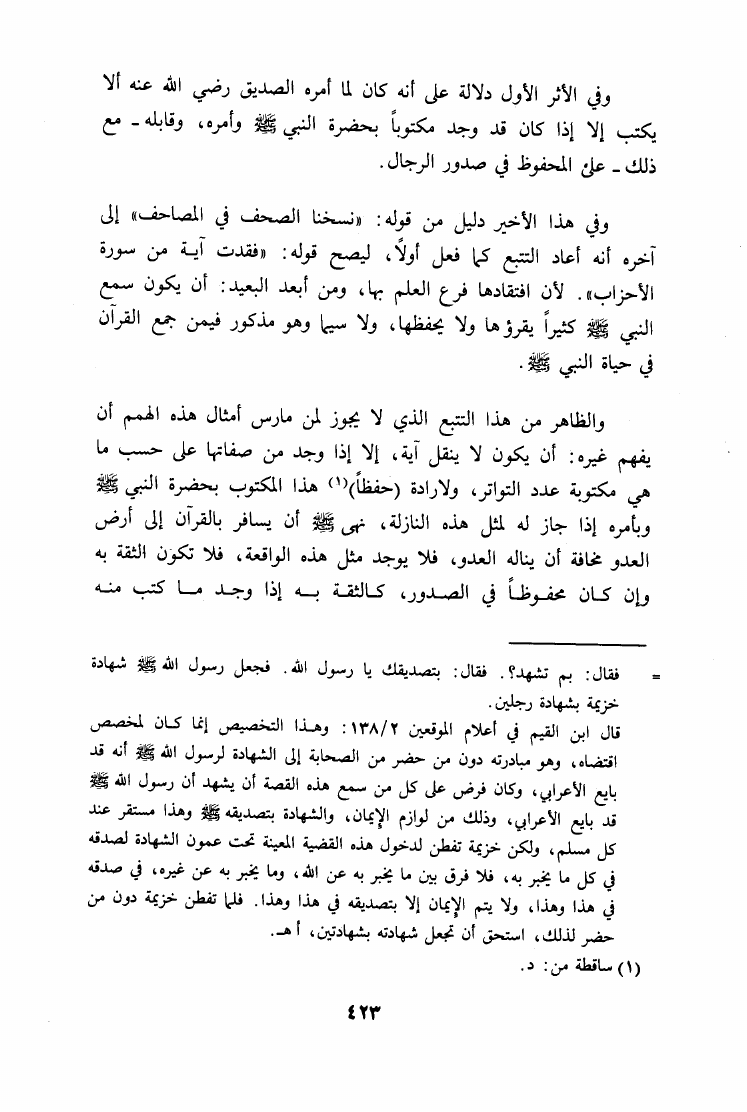 وفي الأثر الأول دلالة على أنه كان لما أمره الصديق رضي الله عنه ألا
يكتب إلا إذا كان قد وجد مكتوباً بحضرة النبي ﷺ وأمره، وقابله - مع
ذلك - على المحفوظ في صدور الرجال.
وفي هذا الأخير دليل من قوله: «نسخنا الصحف في المصاحف» إلى
آخره أنه أعاد التتبع كما فعل أولاً، ليصح قوله: «فقدت آية من سورة
الأحزاب». لأن افتقادها فرع العلم بها، ومن أبعد البعيد: أن يكون سمع
النبي ﷺ كثيراً يقرؤها ولا يحفظها، ولا سيما وهو مذكور فيمن جمع القرآن
في حياة النبي ﷺ.
والظاهر من هذا التتبع الذي لا يجوز لمن مارس أمثال هذه الهمم أن
يفهم غيره: أن يكون لا ينقل آية، إلا إذا وجد من صفاتها على حسب ما
هي مكتوبة عدد التواتر، ولارادة (حفظاً)(١) هذا المكتوب بحضرة النبي ﷺ
وبأمره إذا جاز له لمثل هذه النازلة، نهى ﷺ أن يسافر بالقرآن إلى أرض
العدو مخافة أن يناله العدو، فلا يوجد مثل هذه الواقعة، فلا تكون الثقة به
وإن كان محفوظاً في الصدور، كالثقة به إذا وجد ما كتب منه
= فقال: بم تشهد؟. فقال: بتصديقك يا رسول الله. فجعل رسول الله ﷺ شهادة
خزيمة بشهادة رجلين.
قال ابن القيم في أعلام الموقعين ١٣٨/٢: وهذا التخصيص إنما كان لمخصص
اقتضاه، وهو مبادرته دون من حضر من الصحابة إلى الشهادة لرسول الله ﷺ أنه قد
بايع الأعرابي، وكان فرض على كل من سمع هذه القصة أن يشهد أن رسول الله ﷺ
قد بايع الأعرابي، وذلك من لوازم الإيمان، والشهادة بتصديقه ﷺ وهذا مستقر عند
كل مسلم، ولكن خزيمة تفطن لدخول هذه القضية المعينة تحت عمون الشهادة لصدقه
في كل ما يخبر به، فلا فرق بين ما يخبر به عن الله، وما يخبر به عن غيره، في صدقه
في هذا وهذا، ولا يتم الإيمان إلا بتصديقه في هذا وهذا. فلما تفطن خزيمة دون من
حضر لذلك، استحق أن تجعل شهادته بشهادتين، أ هـ.
(١) ساقطة من: د.
٤٢٣